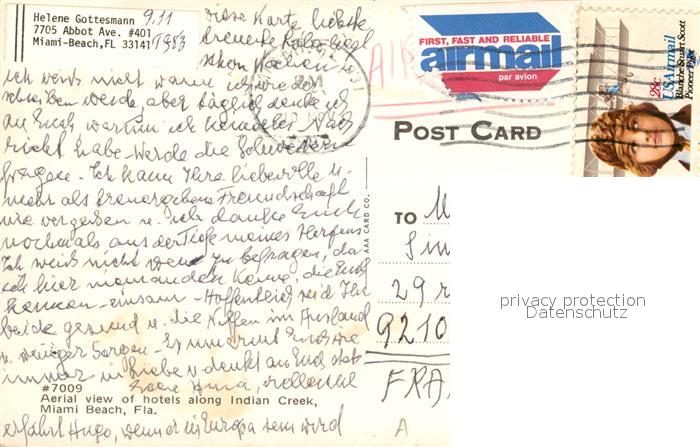 Helene Gottesmann 9.11
7705 Abbot Ave. #401
Miami-Beach, FL 33141 1983
diese Karte liebste
schon Wochen
Ich weiss nicht wann ich wieder
schreiben werde, aber täglich denke ich
an Euch warum ich keinerlei Nach
richt habe. Werde die Schwestern
fragen. Ich kann Ihre liebevolle u.
mehr als Freundschaft
nie vergessen u. ich danke Euch
nochmals aus der Tiefe meines Herzens
Ich weiss nicht wen zu befragen, da
ich hier niemanden kenne, die Euch
kennen - einsam - Hoffentlich seid Ihr
beide gesund u. die Neffen im Ausland
u. weniger Sorgen - Es umarmt Euch wie
immer in Liebe u. denkt an Euch stets
Eure vielleicht
#7009
Aerial view of hotels along Indian Creek,
Miami Beach, Fla.
erfährt Hugo, wenn er in Europa sein wird
AAA CARD CO.
FIRST, FAST AND RELIABLE
airmail
par avion
28c
USAirmail
Blanche Stuart Scott
Pioneer Pilot
POST CARD
TO M
Sin
29 r
9210
FRA
A
privacy protection
Datenschutz